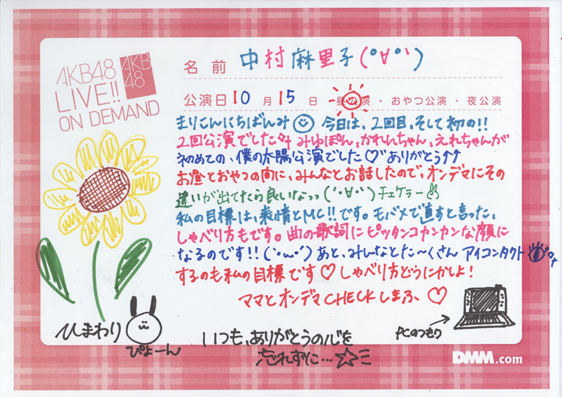 AKB48
LIVE!!
ON DEMAND
AKB
48
名前 中村麻里子(°∀°)
公演日 10月15日 昼公演・おやつ公演・夜公演
まりこんにちばんみ 今日は、2回目、そして初の!!
2回公演でした みゆぽん、かれんちゃん、えれちゃんが
初めての、僕の太陽公演でした♡ありがとう↑↑
お昼とおやつの間に、みんなとお話したので、オンデマにその
違いが出てたら良いなっっ(°∀°)チェケラー
私の目標は、表情とMC!!です。モバメで直すと言った、
しゃべり方もです。曲の歌詞にピッタンコカンカンな顔に
なるのです!!(・ω・)あと、みんなとた〜くさんアイコンタクト
するのも私の目標です♡しゃべり方どうにかしよ!
ママとオンデマCHECKしまふ、♡
ひまわり
ぴょーん
いつも、ありがとうの心を
忘れずに…☆ミ
PCのつもり
DMM.com